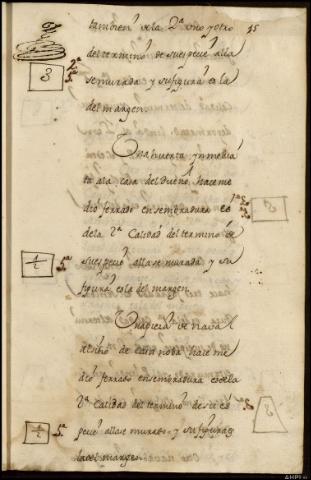 tambien de la 2ª uno y otro
15
del termino de su especie alla
se murada y su figura es la
del margen.
Una huerta ynmedia
ta a la casa del dueño, hace me
dio ferrado en sembradura es
de la 2ª Calidad del termino de
su especie alla se murada y su
figura es la del margen
Una pieza de nava
al sitio de hace me
dio ferrado en sembradura es de la
2ª Calidad del termino de su es
pecie alla se murado y su figura es
la del margen
AHPL